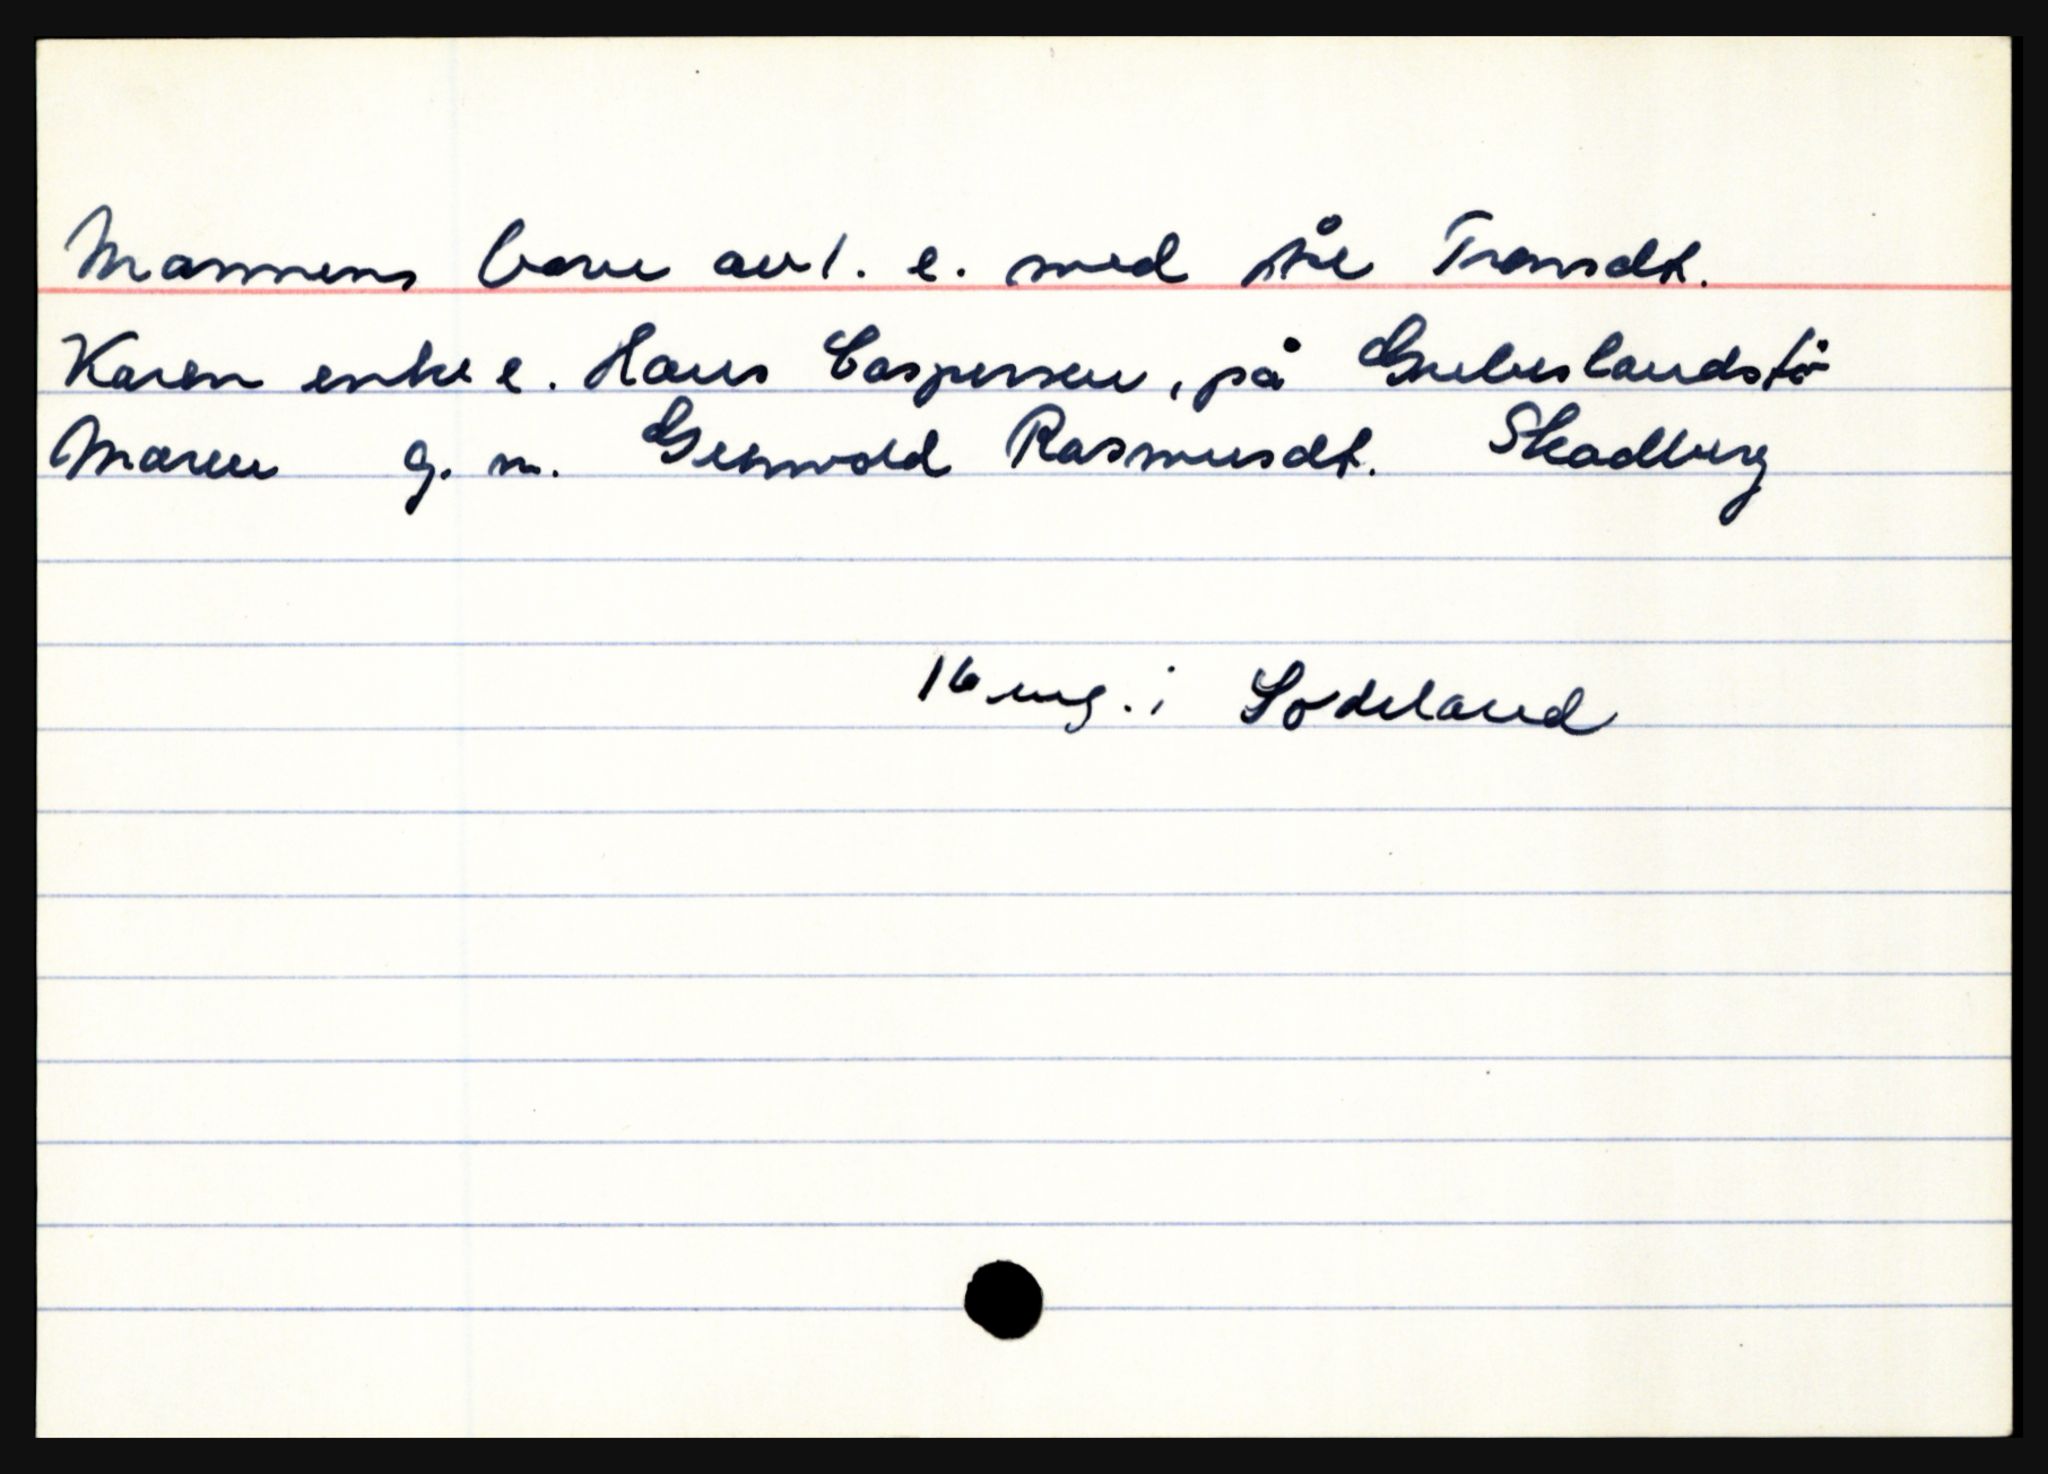 Mannens barn avl. e. med Åse Tronsdt.
Karen enke e. Hans Caspersen, på Guleslandstø
Maren g. m. Gunvold Rasmusdt. Skadberg
16 mg. i Sodeland